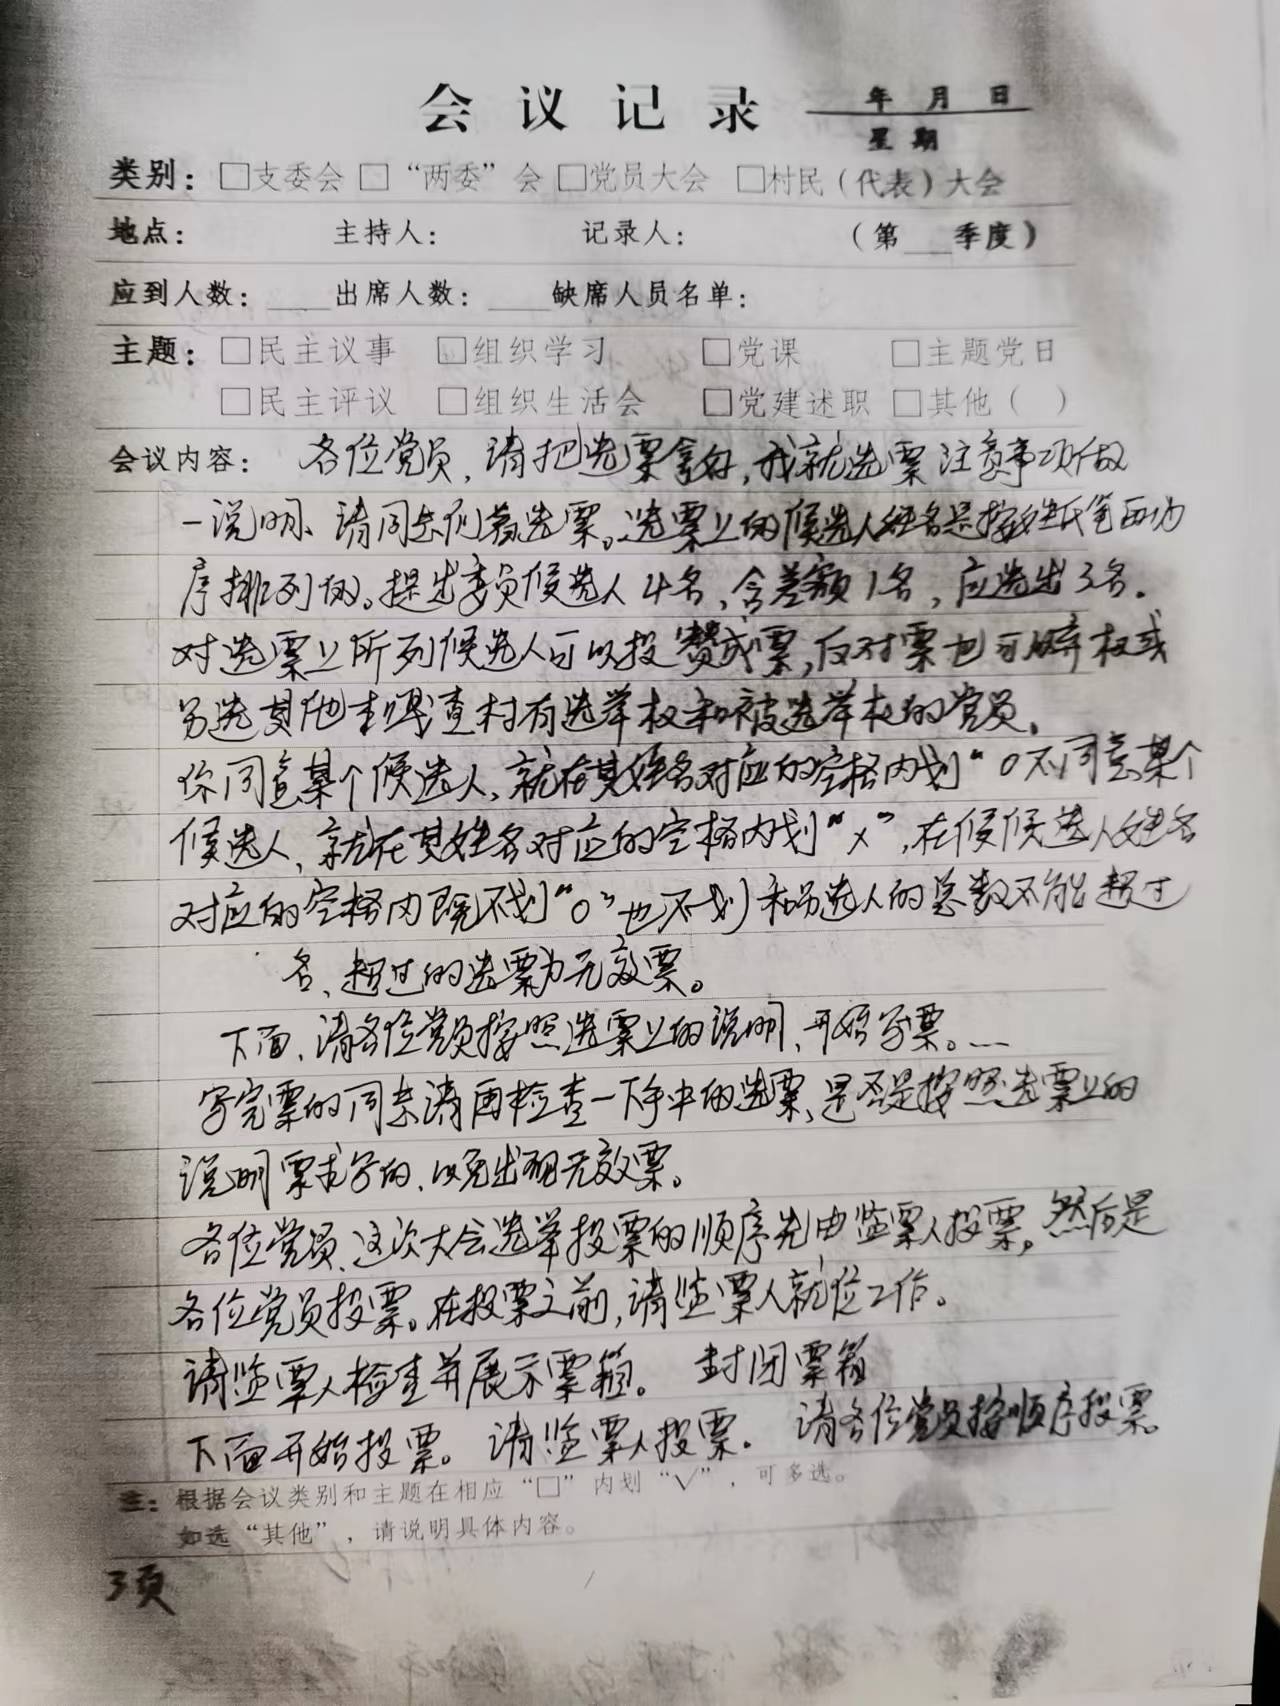 会议记录
年 月 日
星 期
类别：□支委会 □“两委”会 □党员大会 □村民（代表）大会
地点： 主持人： 记录人： （第___季度）
应到人数：____出席人数：____缺席人员名单：
主题：□民主议事 □组织学习 □党课 □主题党日
□民主评议 □组织生活会 □党建述职 □其他（ ）
会议内容： 各位党员，请把选票拿好，我就选票注意事项做
一说明、请同志们看选票。选票上的候选人姓名是按姓氏笔画为
序排列的。提出委员候选人4名，含差额1名，应选出3名。
对选票上所列候选人可以投赞成票，反对票也可弃权或
另选其他 查村有选举权和被选举权的党员。
你同意某个候选人，就在其姓名对应的空格内划“O不同意某个
候选人，就在其姓名对应的空格内划“×”，在候候选人姓名
对应的空格内既不划“O”也不划 和另选人的总数不能超过
名、超过的选票为无效票。
下面、请各位党员按照选票上的说明、开始写票。...
写完票的同志请再检查一下手中的选票、是否是按照选票上的
说明要求写的、以免出现无效票。
各位党员、这次大会选举投票的顺序先由监票人投票，然后是
各位党员投票。在投票之前，请监票人就位工作。
请监票人检查并展示票箱。 封闭票箱
下面开始投票。请监票人投票。 请各位党员按顺序投票。
注：根据会议类别和主题在相应“□”内划“√”，可多选。
如选“其他”，请说明具体内容。
3页